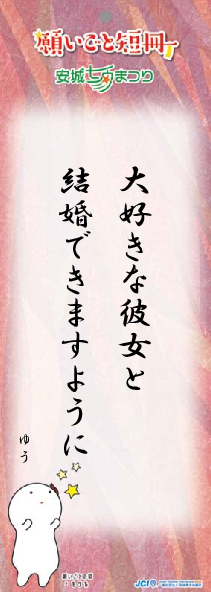 願いごと短冊
安城七夕まつり
大好きな彼女と
結婚できますように
ゆう
願いごと短冊
JCI